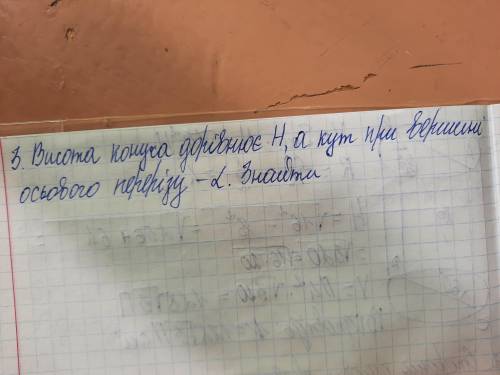 3. Висота конуса дорівнює H, а кут при вершині
осьового перерізу - α. Знайти